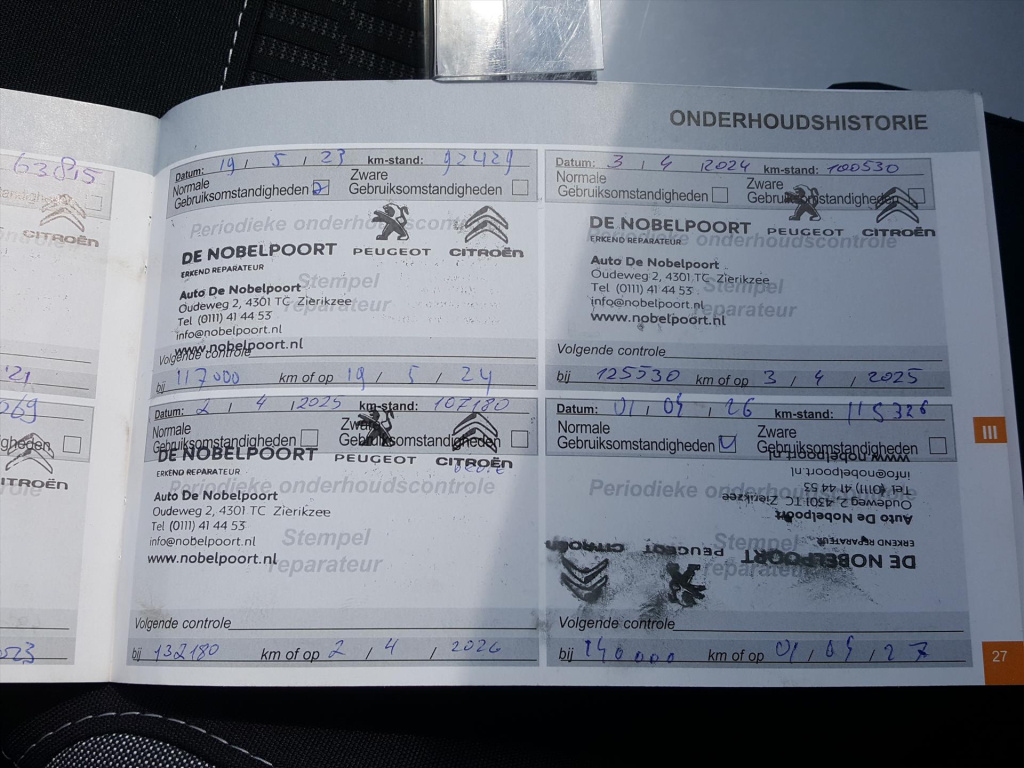 63815
CITROËN
'21
069
CITROËN
2023
ONDERHOUDSHISTORIE
Datum: 19 / 5 / 23 km-stand: 92429
Normale Gebruiksomstandigheden
Zware Gebruiksomstandigheden
Periodieke onderhoudscontrole
DE NOBELPOORT
ERKEND REPARATEUR
PEUGEOT CITROËN
Stempel reparateur
Auto De Nobelpoort
Oudeweg 2, 4301 TC Zierikzee
Tel (0111) 41 44 53
info@nobelpoort.nl
www.nobelpoort.nl
Volgende controle
bij 117000 km of op 19 / 5 / 24
Datum: 3 / 4 / 2024 km-stand: 100530
Normale Gebruiksomstandigheden
Zware Gebruiksomstandigheden
Periodieke onderhoudscontrole
DE NOBELPOORT
ERKEND REPARATEUR
PEUGEOT CITROËN
Stempel reparateur
Auto De Nobelpoort
Oudeweg 2, 4301 TC Zierikzee
Tel (0111) 41 44 53
info@nobelpoort.nl
www.nobelpoort.nl
Volgende controle
bij 125530 km of op 3 / 4 / 2025
Datum: 2 / 4 / 2025 km-stand: 107180
Normale Gebruiksomstandigheden
Zware Gebruiksomstandigheden
Periodieke onderhoudscontrole
DE NOBELPOORT
ERKEND REPARATEUR
PEUGEOT CITROËN
Stempel reparateur
Auto De Nobelpoort
Oudeweg 2, 4301 TC Zierikzee
Tel (0111) 41 44 53
info@nobelpoort.nl
www.nobelpoort.nl
Volgende controle
bij 132180 km of op 2 / 4 / 2026
Datum: 01 / 04 / 26 km-stand: 115326
Normale Gebruiksomstandigheden
Zware Gebruiksomstandigheden
Periodieke onderhoudscontrole
DE NOBELPOORT
ERKEND REPARATEUR
PEUGEOT CITROËN
Stempel reparateur
Auto De Nobelpoort
Oudeweg 2, 4301 TC Zierikzee
Tel (0111) 41 44 53
info@nobelpoort.nl
www.nobelpoort.nl
Volgende controle
bij 140000 km of op 01 / 04 / 27
III
27